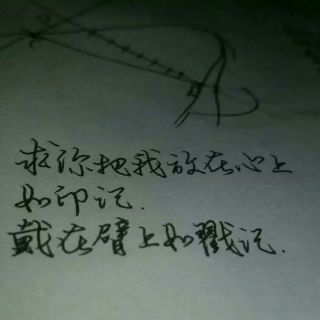 求你把我放在心上
如印记.
戴在臂上如戳记.